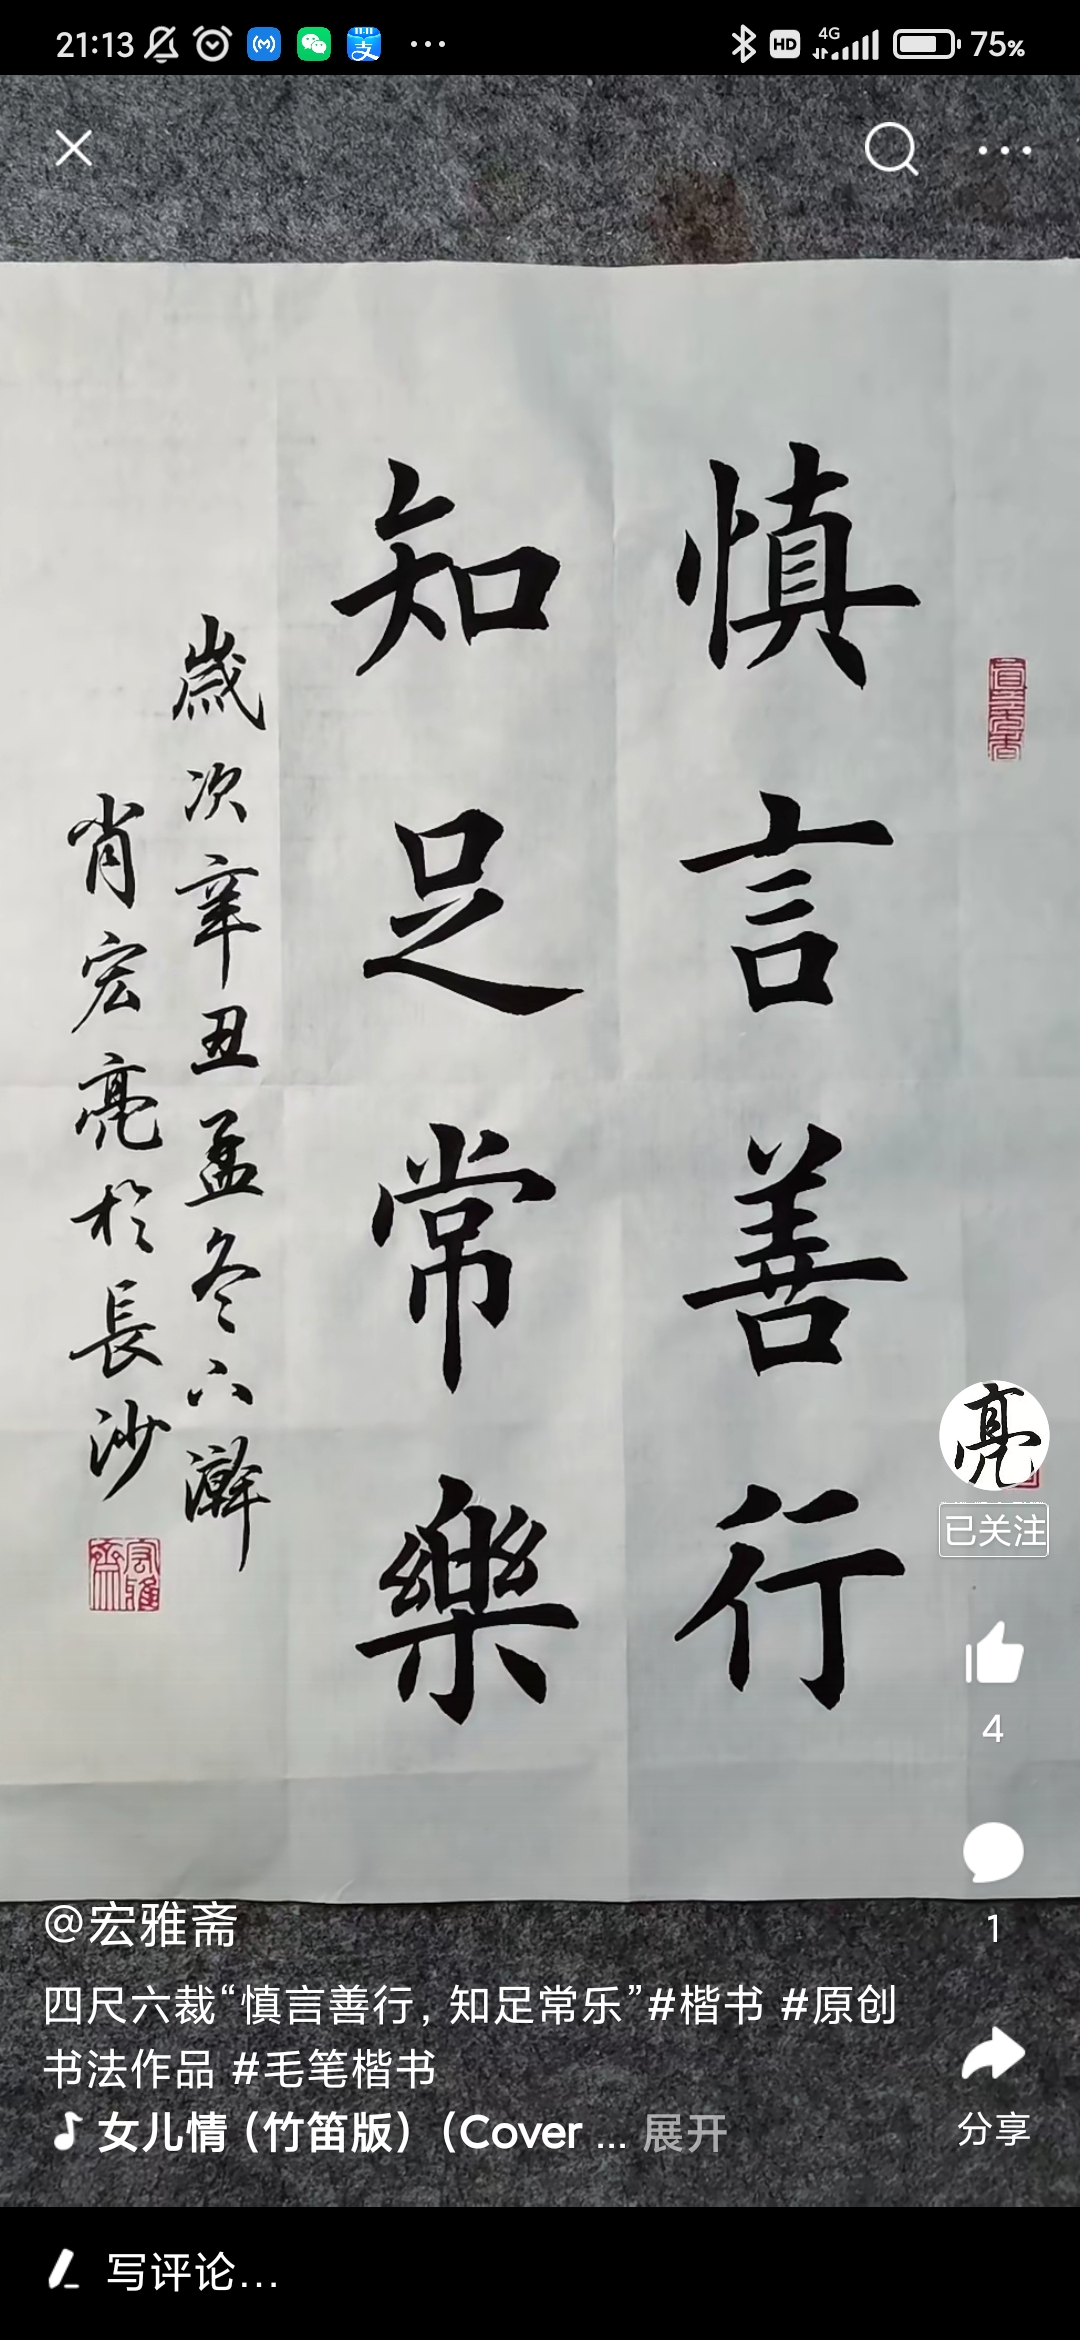 21:13
HD
4G
75%
慎言善行
知足常樂
歲次辛丑孟冬六澣
肖宏亮於長沙
宏雅齋
亮
已关注
4
1
@宏雅斋
四尺六裁“慎言善行，知足常乐”#楷书 #原创
书法作品 #毛笔楷书
女儿情（竹笛版）（Cover ... 展开
分享
写评论...